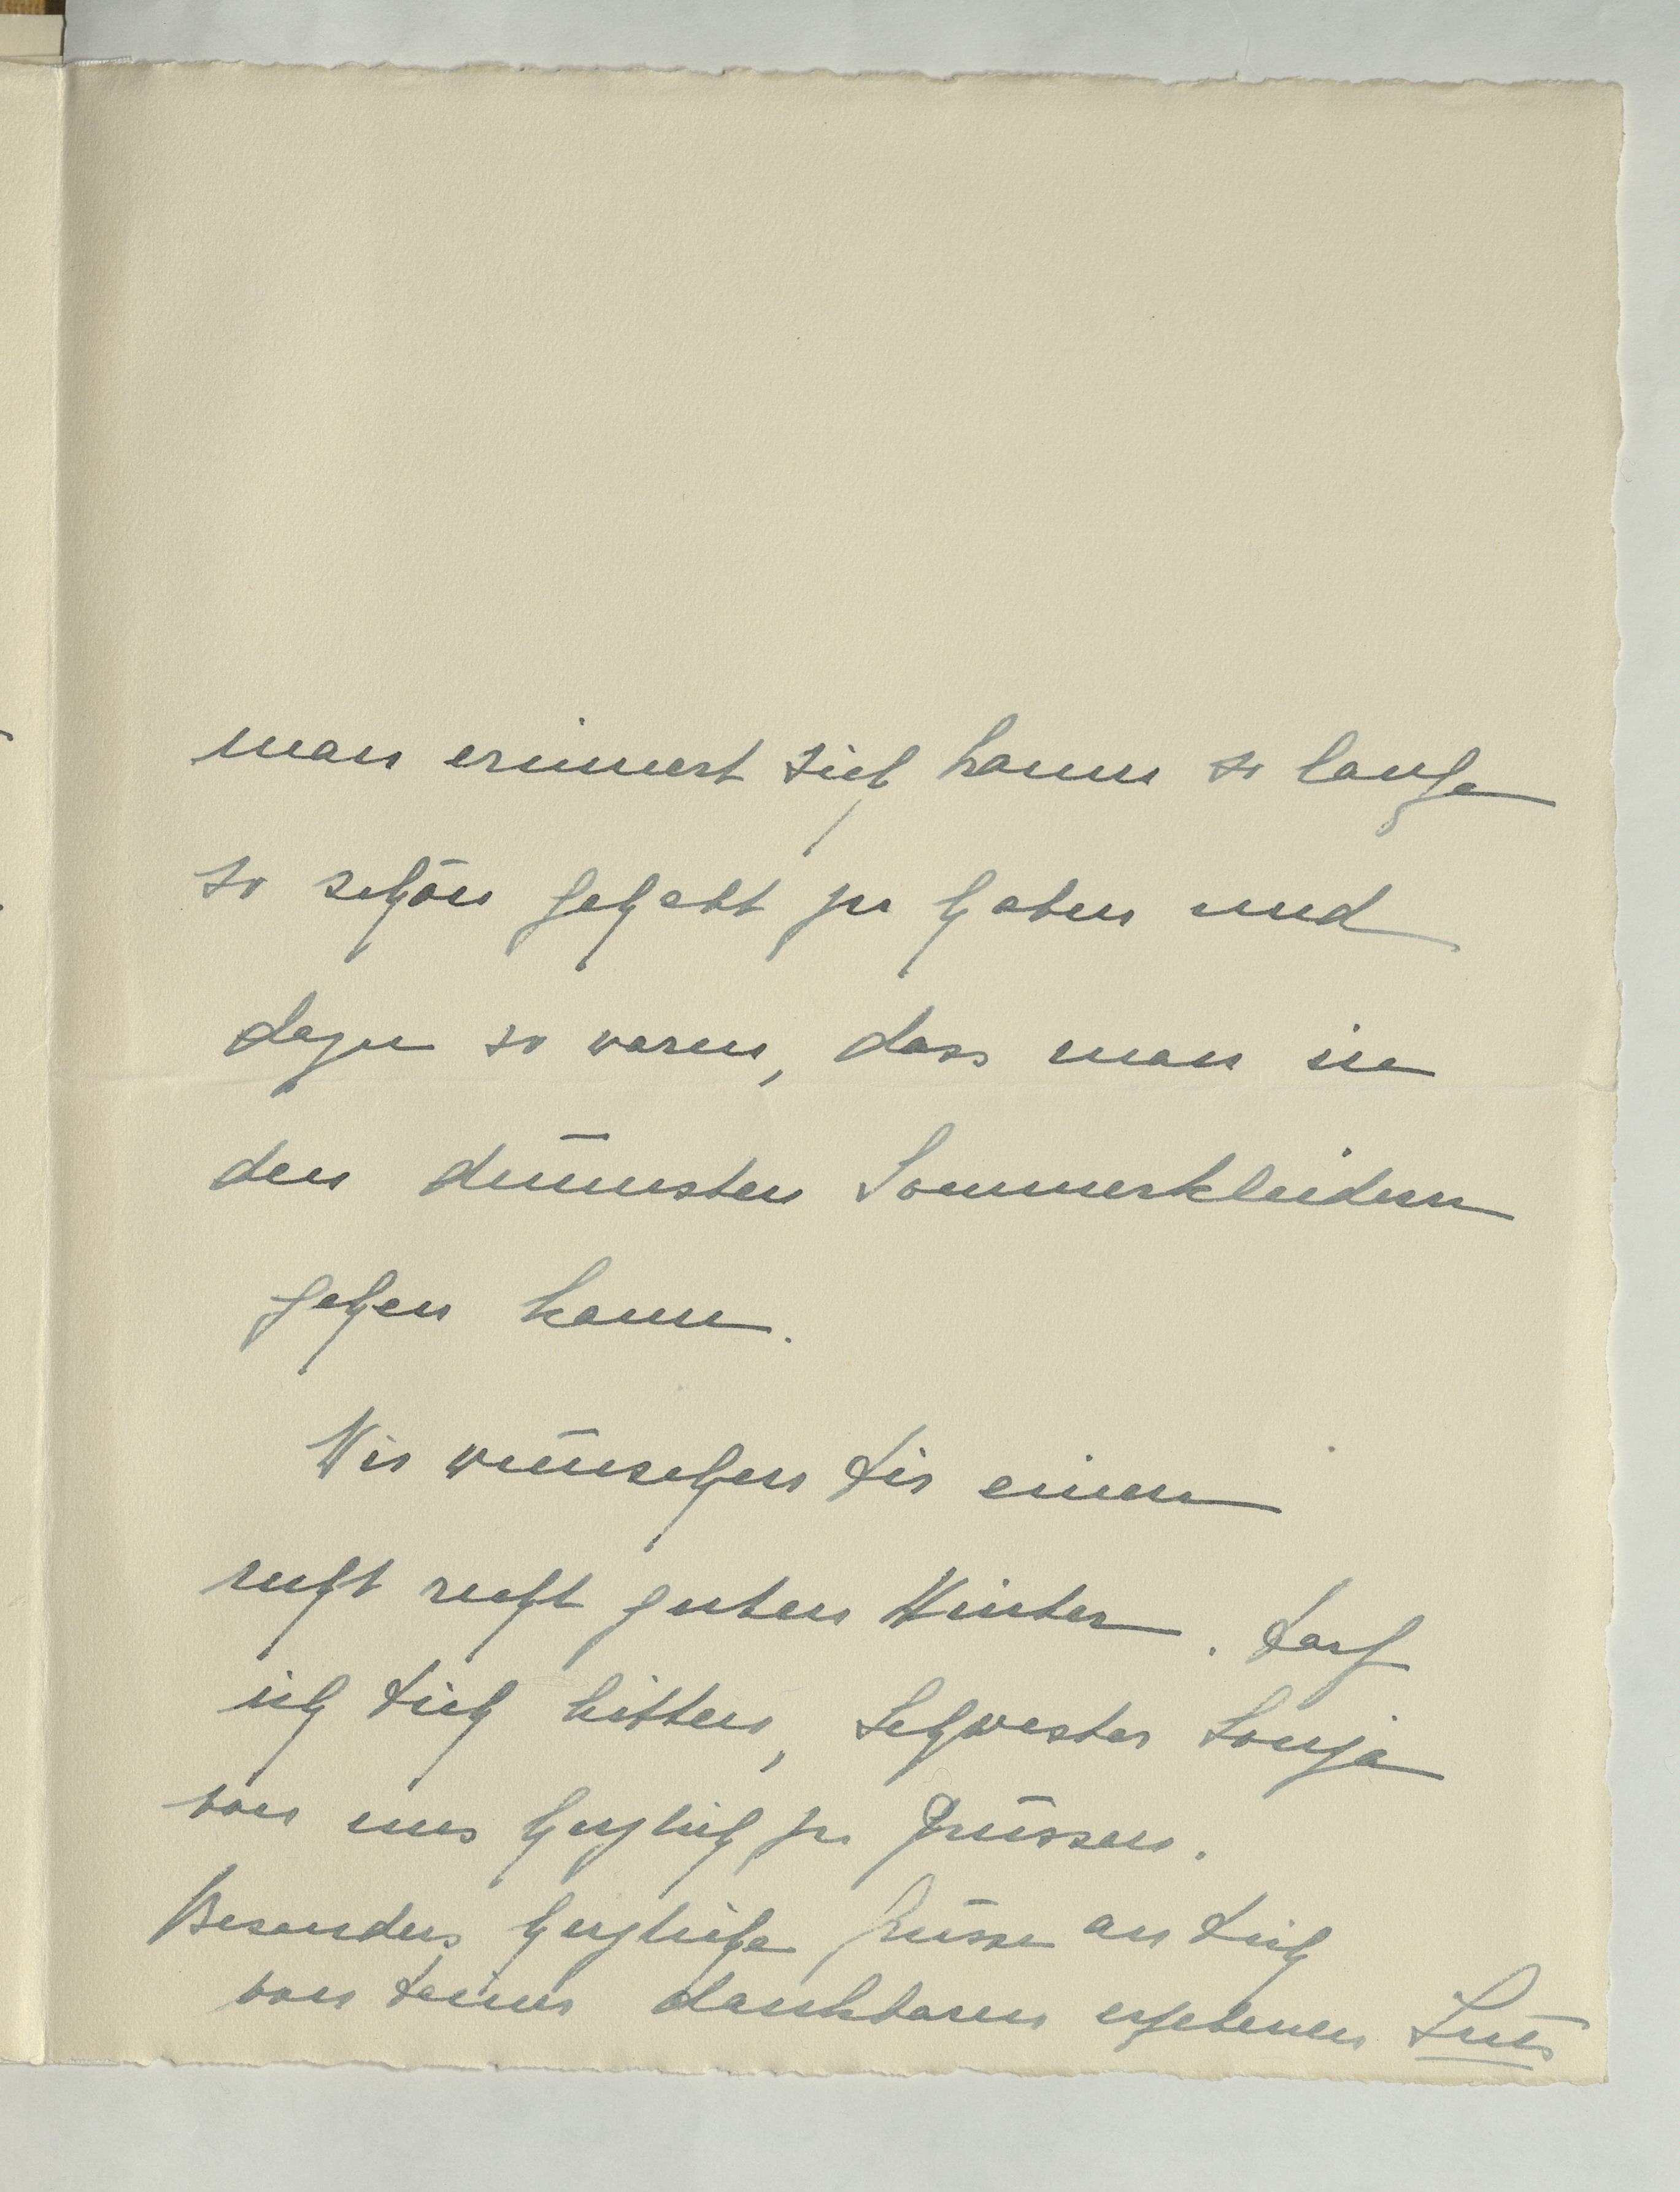 man erinnert sich kaum so lange
so schön gehabt zu haben und
dazu so warm, dass man in
den dünnsten Sommerkleidern
gehen kann.
Wir wünschen Dir einen
recht recht guten Winter. Darf
ich Dich bitten, Schwester Sonja
von uns herzlich zu grüssen.
Besonders herzliche Grüsse an Dich
von Deiner dankbaren ergebenen